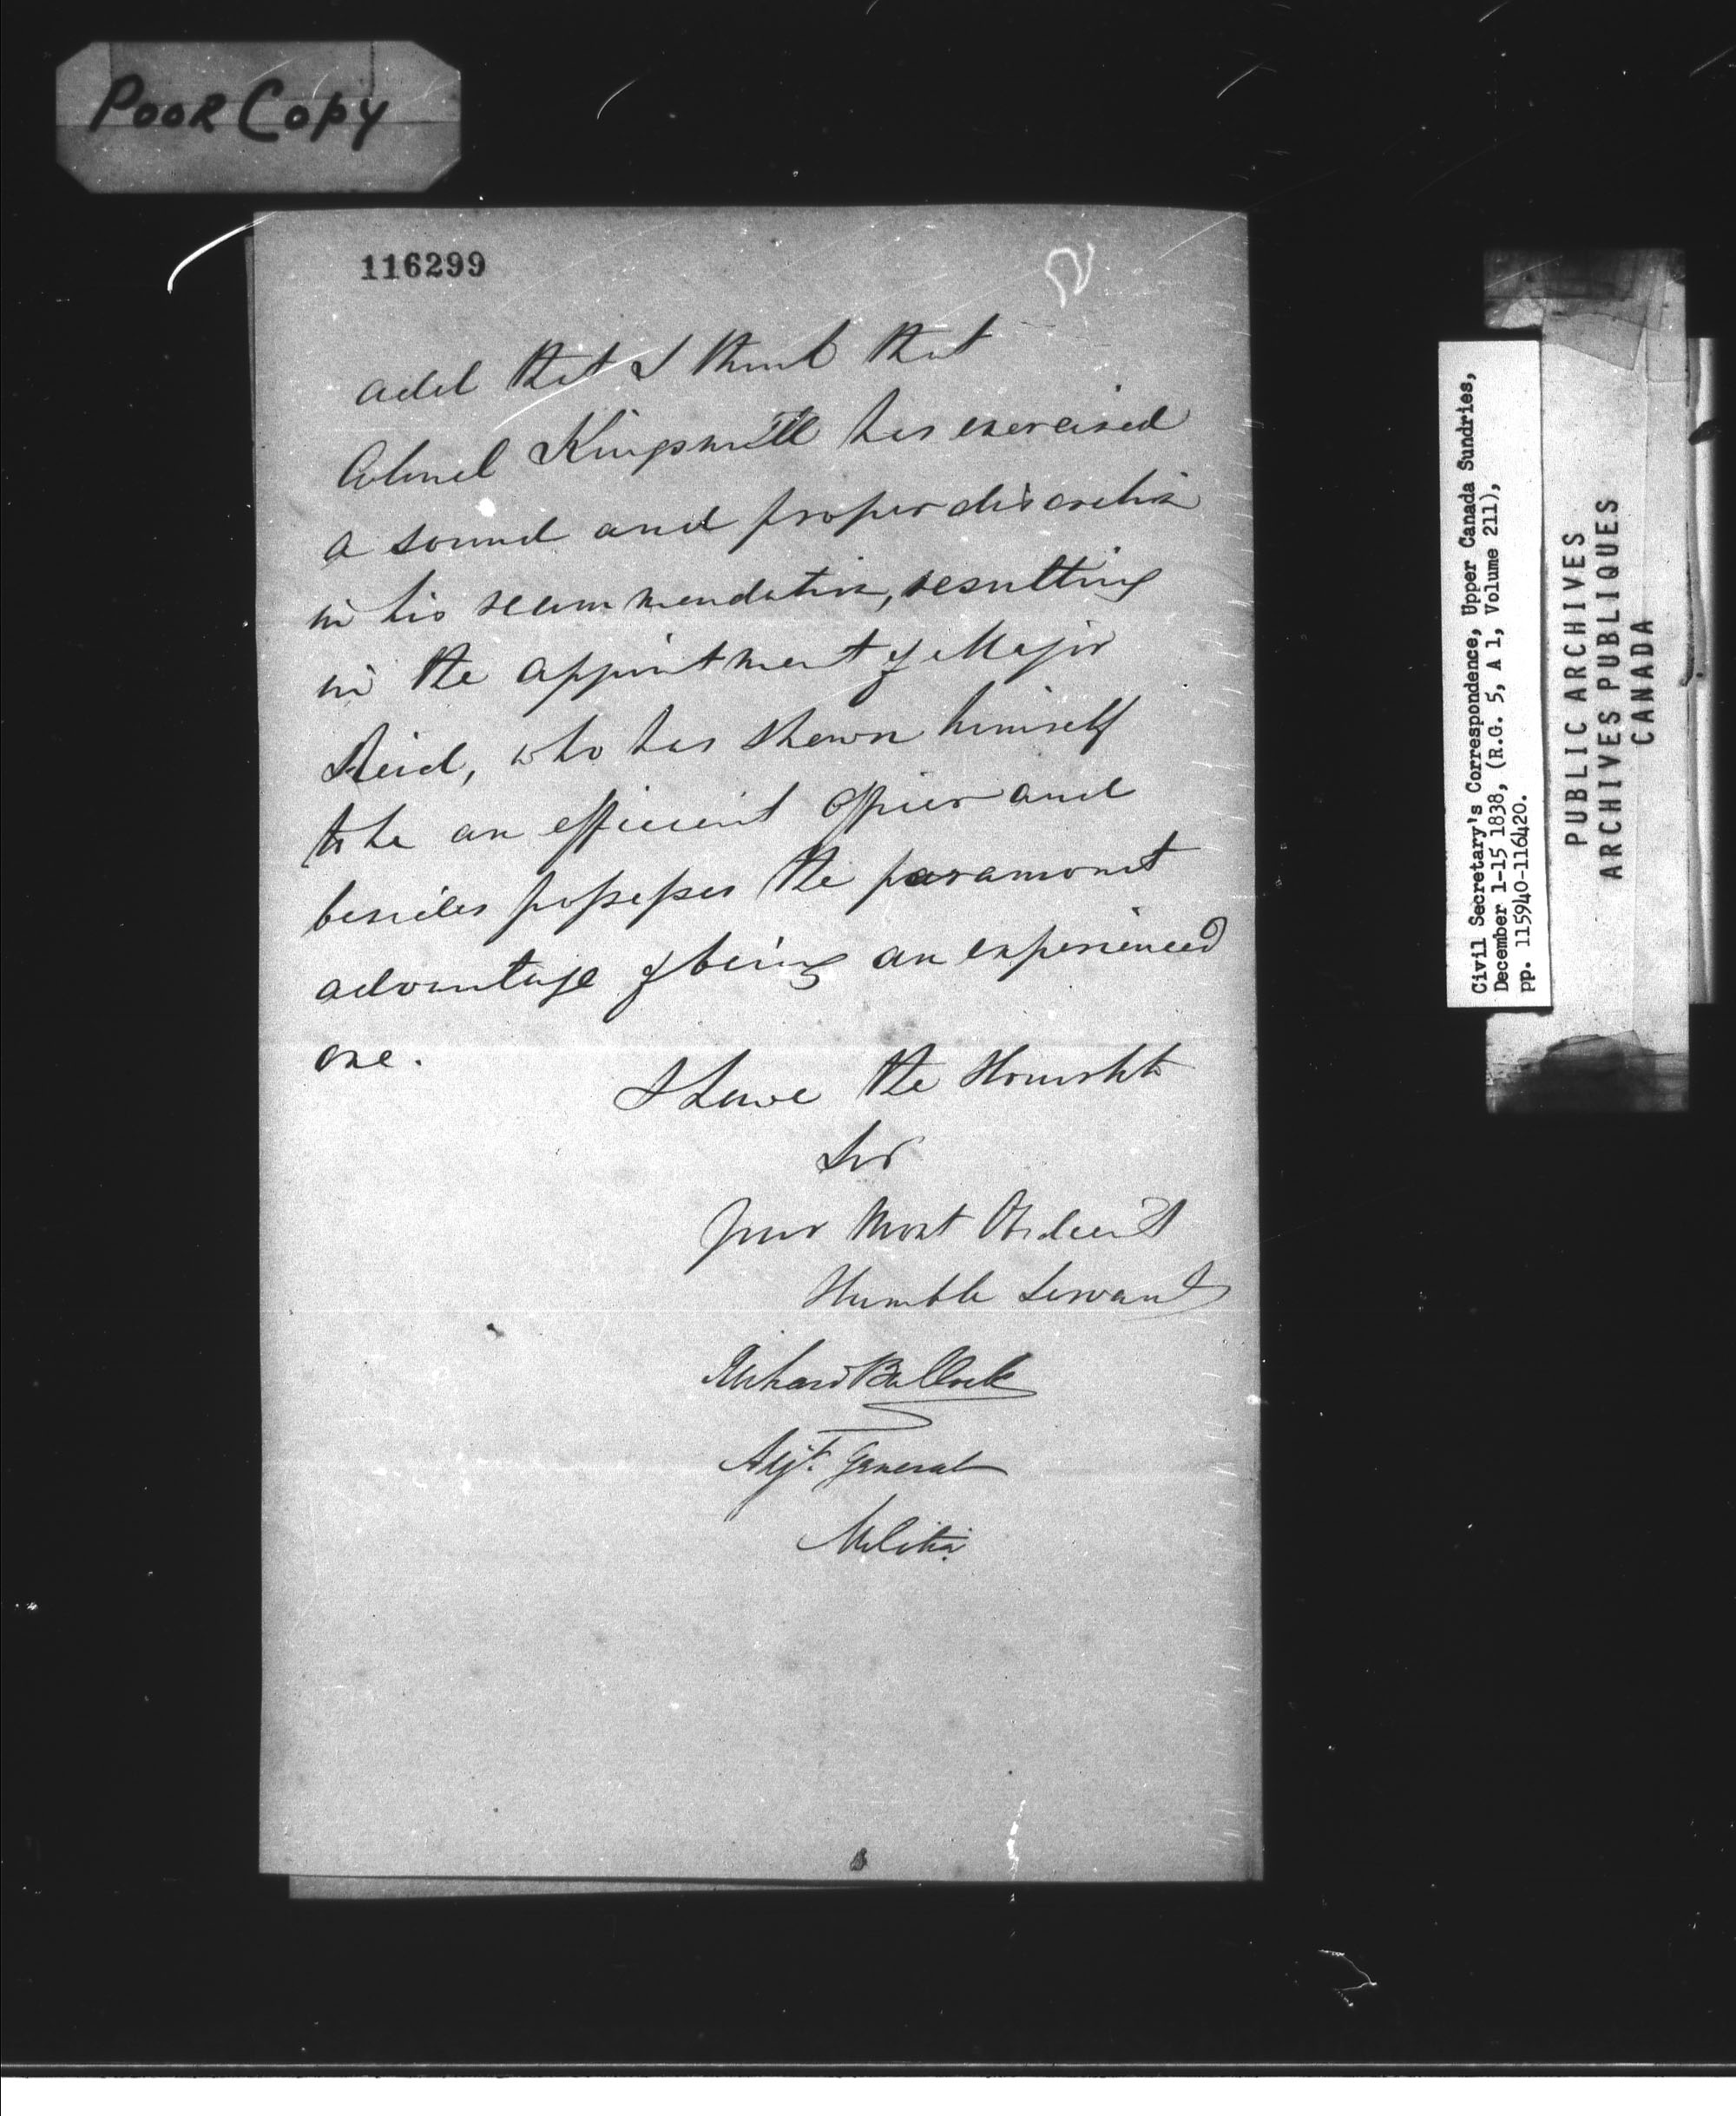 Poor Copy
116299
add that I think that
Colonel Kingsmill has exercised
a sound and proper discretion
in his recommendation, resulting
in the appointment of Major
Reid, who has shewn himself
to be an efficient officer and
besides possesses the paramount
advantage of being an experienced
one.
I have the Honor to be
Sir
Your Most Obedient
Humble Servant
Richard Bullock
Adjt. General
Militia
Civil Secretary's Correspondence, Upper Canada Sundries,
December 1-15 1838, (R.G. 5, A 1, Volume 211),
pp. 115940-116420.
PUBLIC ARCHIVES
ARCHIVES PUBLIQUES
CANADA